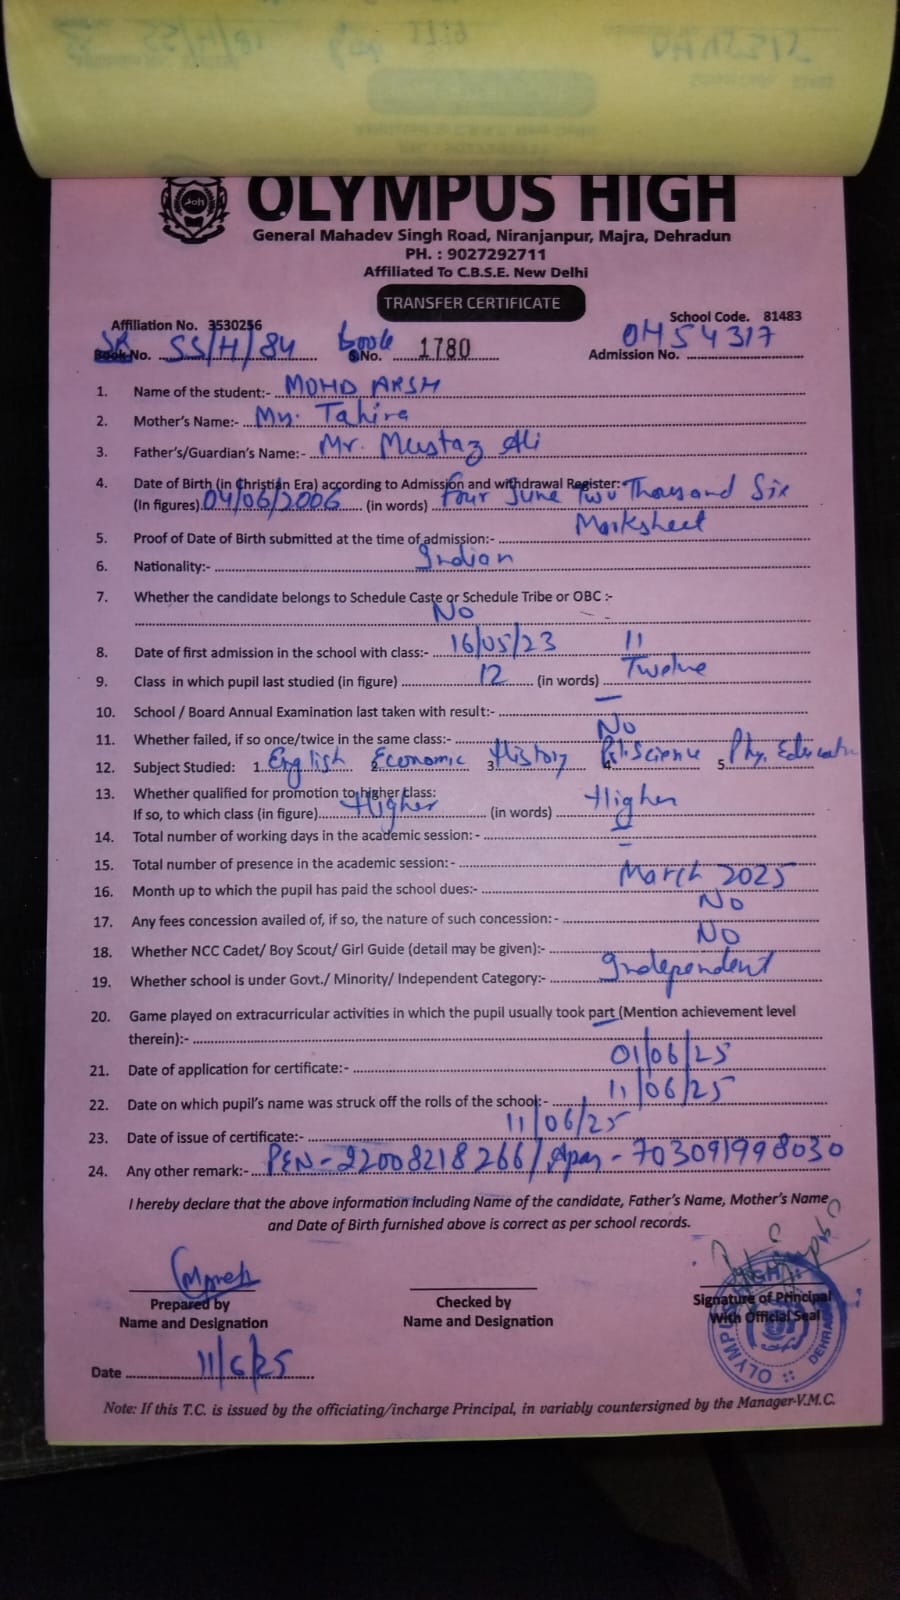 OLYMPUS HIGH
General Mahadev Singh Road, Niranjanpur, Majra, Dehradun
PH. : 9027292711
Affiliated To C.B.S.E. New Delhi
TRANSFER CERTIFICATE
Affiliation No. 3530256 School Code. 81483
SR No. SS/H/84 Book No. 1780 Admission No. OH54317
1. Name of the student:- MOHD ARSH
2. Mother's Name:- Mrs. Tahira
3. Father's/Guardian's Name:- Mr. Mustaz Ali
4. Date of Birth (in Christian Era) according to Admission and withdrawal Register:-
(In figures) 04/06/2006 (in words) Four June Two Thousand Six
5. Proof of Date of Birth submitted at the time of admission:- Marksheet
6. Nationality:- Indian
7. Whether the candidate belongs to Schedule Caste or Schedule Tribe or OBC :-
No
8. Date of first admission in the school with class:- 16/05/23 11
9. Class in which pupil last studied (in figure) 12 (in words) Twelve
10. School / Board Annual Examination last taken with result:- —
11. Whether failed, if so once/twice in the same class:- No
12. Subject Studied: 1. English 2. Economic 3. History 4. Pol. Science 5. Phy. Education
13. Whether qualified for promotion to higher class:
If so, to which class (in figure) Higher (in words) Higher
14. Total number of working days in the academic session:- —
15. Total number of presence in the academic session:- —
16. Month up to which the pupil has paid the school dues:- March 2025
17. Any fees concession availed of, if so, the nature of such concession:- No
18. Whether NCC Cadet/ Boy Scout/ Girl Guide (detail may be given):- No
19. Whether school is under Govt./ Minority/ Independent Category:- Independent
20. Game played on extracurricular activities in which the pupil usually took part (Mention achievement level
therein):- —
21. Date of application for certificate:- 01/06/25
22. Date on which pupil's name was struck off the rolls of the school:- 11/06/25
23. Date of issue of certificate:- 11/06/25
24. Any other remark:- PEN-22008218266/ Apar-703091998030
I hereby declare that the above information including Name of the candidate, Father's Name, Mother's Name
and Date of Birth furnished above is correct as per school records.
Prepared by Checked by Signature of Principal
Name and Designation Name and Designation With Official Seal
Date 11/6/25
Note: If this T.C. is issued by the officiating/incharge Principal, in variably countersigned by the Manager-V.M.C.